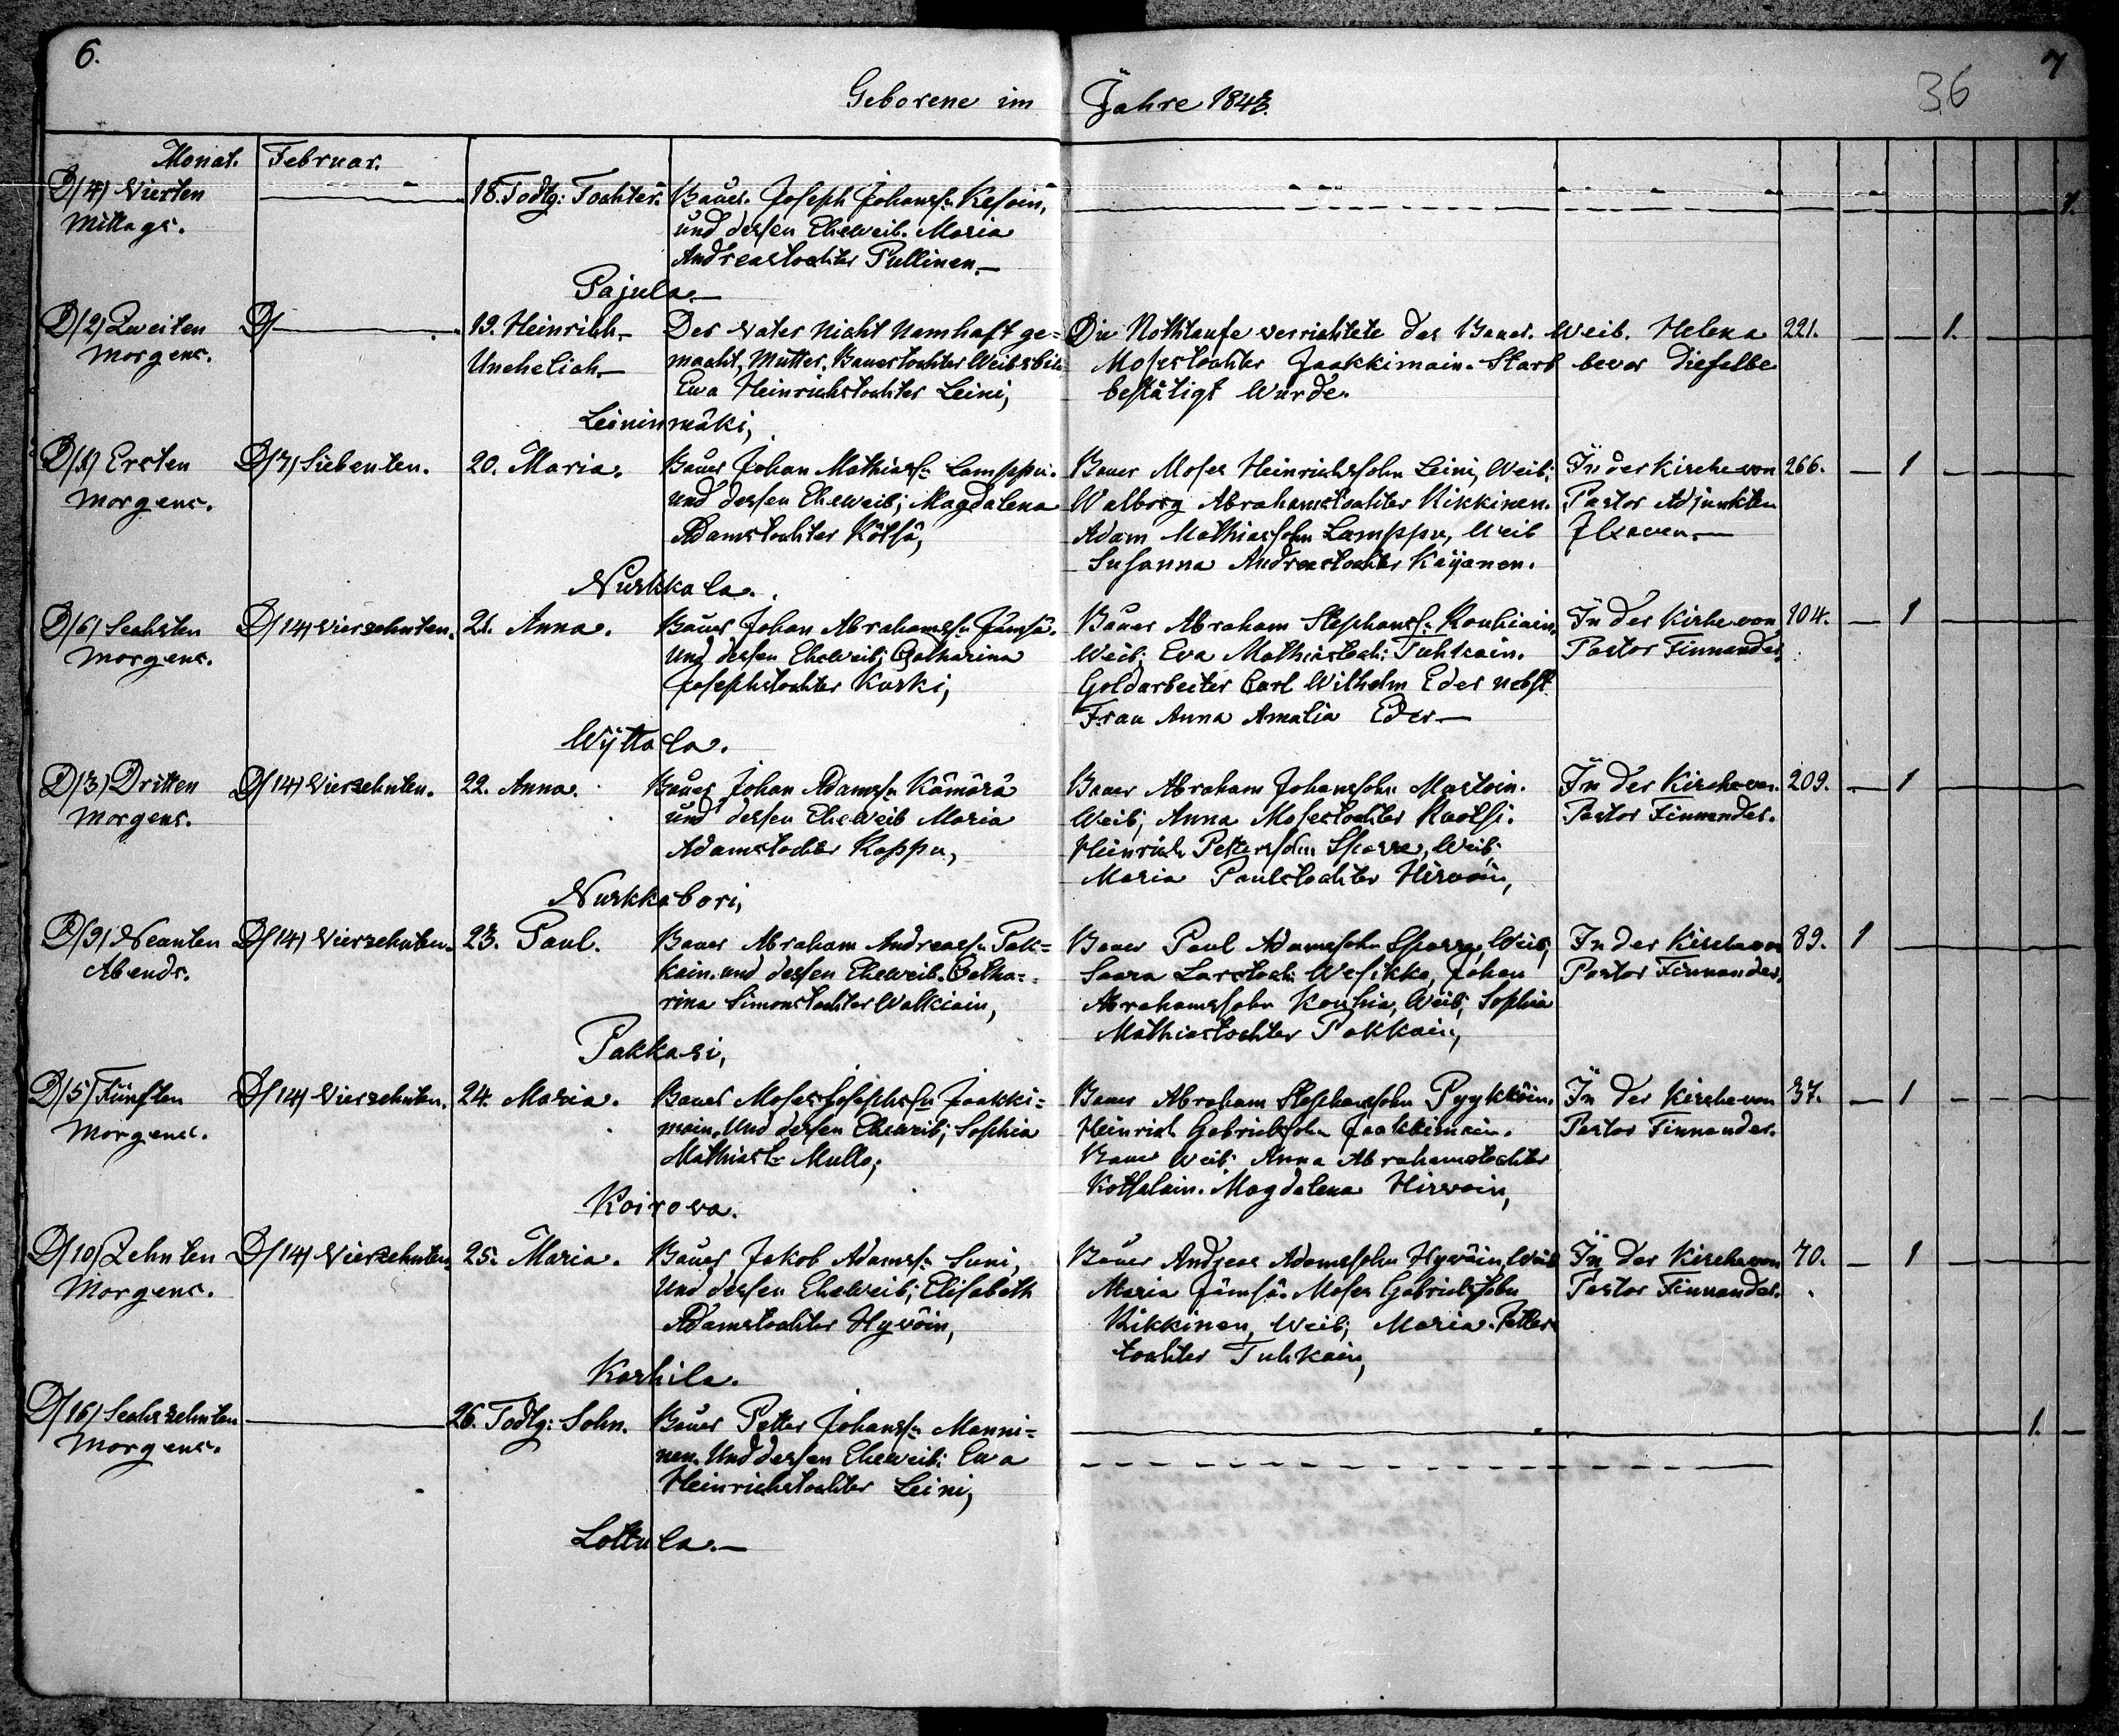 6.
7
36
Geborene im Jahre 1843.
Monat. Februar.
D/4/ Vierten
Mittags.
18. Todtg: Tochter.
Bauer. Joseph Johanss: Kesoin,
und dessen Eheweib. Maria
Andreastochter Pullinen.
Pajula.
1.
D/2/ Zweiten
Morgens.
D/
19. Heinrich
Unehelich
Der Vater nicht namhaft ge=
macht, Mutter, Bauerstochter
Ewa Heinrichstochter Leini,
Leininmäki,
Die Nothtaufe verrichtete das Bauer. Weib. Helena
Mosestochter Jaakkimain. Starb bevor dieselbe
bestätigt wurde.
221.
1.
D/1/ Ersten
Morgens.
D/7/ Siebenten.
20. Maria.
Bauer Johan Mathiass: Lamppu.
und dessen Eheweib; Magdalena
Adamstochter Kötsä,
Nurkkala.
Bauer Moses Heinrichssohn Leini, Weib;
Walborg Abrahamstochter Kikkinen.
Adam Mathiassohn Lamppu, Weib
Susanna Andreastochter Käyänen.
In der Kirche von
Pastor Adjunkten
266.
1
D/6/ Sechsten
Morgens.
D/14/ Vierzehnten.
21. Anna.
Bauer Johan Abrahamss: Jämsä.
Und dessen Eheweib; Catharina
Josephstochter Kurki,
Wÿttala.
Bauer Abraham Stephanss: Rouhiain,
Weib; Eva Mathiastoch: Tuhkain.
Goldarbeiter Carl Wilhelm Eder nebst
Frau Anna Amalia Eder
In der Kirche von
Pastor Finnander.
104.
1
D/3/ Dritten
Morgens.
D/14/ Vierzehnten.
22. Anna.
Bauer Johan Adamss: Kämärä
und dessen Eheweib Maria
Adamstochter Koppu,
Nurkkabori,
Bauer Abraham Johanssohn Mastoin.
Weib; Anna Mosestochter Ruotsi.
Heinrich Petterssohn Sparre, Weib;
Maria Paulstochter Hirvoin,
In der Kirche von
Pastor Finnander.
209.
1
D/9/ Neunten
Abends.
D/14/ Vierzehnten.
23. Paul.
Bauer Abraham Andreass: Pak=
kain. und dessen Eheweib. Catha=
rina Simonstochter Walkiain,
Pakkasi,
Bauer Paul Adamssohn Sparre, Weib;
Saara Larstoch: Wesikko, Johan
Abrahamssohn Kouhia, Weib; Sophia
Mathiastochter Pakkain,
In der Kirche von
Pastor Finnander.
89.
1
D/5/ Fünften
Morgens.
D/14/ Vierzehnten.
24. Maria.
Bauer Moses Josephss: Jaakki=
main. Und dessen Eheweib; Sophia
Mathiast: Mullo;
Koirova.
Bauer Abraham Stephanssohn Pyykköin.
Heinrich Gabrielssohn Jaakkimain.
Bauer Weib; Anna Abrahamstochter
Kotsalain. Magdalena Hirvoin,
In der Kirche von
Pastor Finnander.
37.
1
D/10/ Zehnten
Morgens.
D/14/ Vierzehnten.
25. Maria.
Bauer, Jakob Adamss: Suni,
Und dessen Eheweib; Elisabeth
Adamstochter Hyvöin,
Karhila.
Bauer Andreas Adamssohn Hyvöin, Weib
Maria Jämsä. Moses Gabrielssohn
Kikkinen, Weib; Maria. Petters
tochter Tuhkain,
In der Kirche von
Pastor Finnander.
70.
1
D/16/ Sechszehnten
Morgens.
26. Todtg: Sohn.
Bauer Petter Johanss: Manni=
nen. Und dessen Eheweib: Ewa
Heinrichstochter Leini,
Lottula.
1.